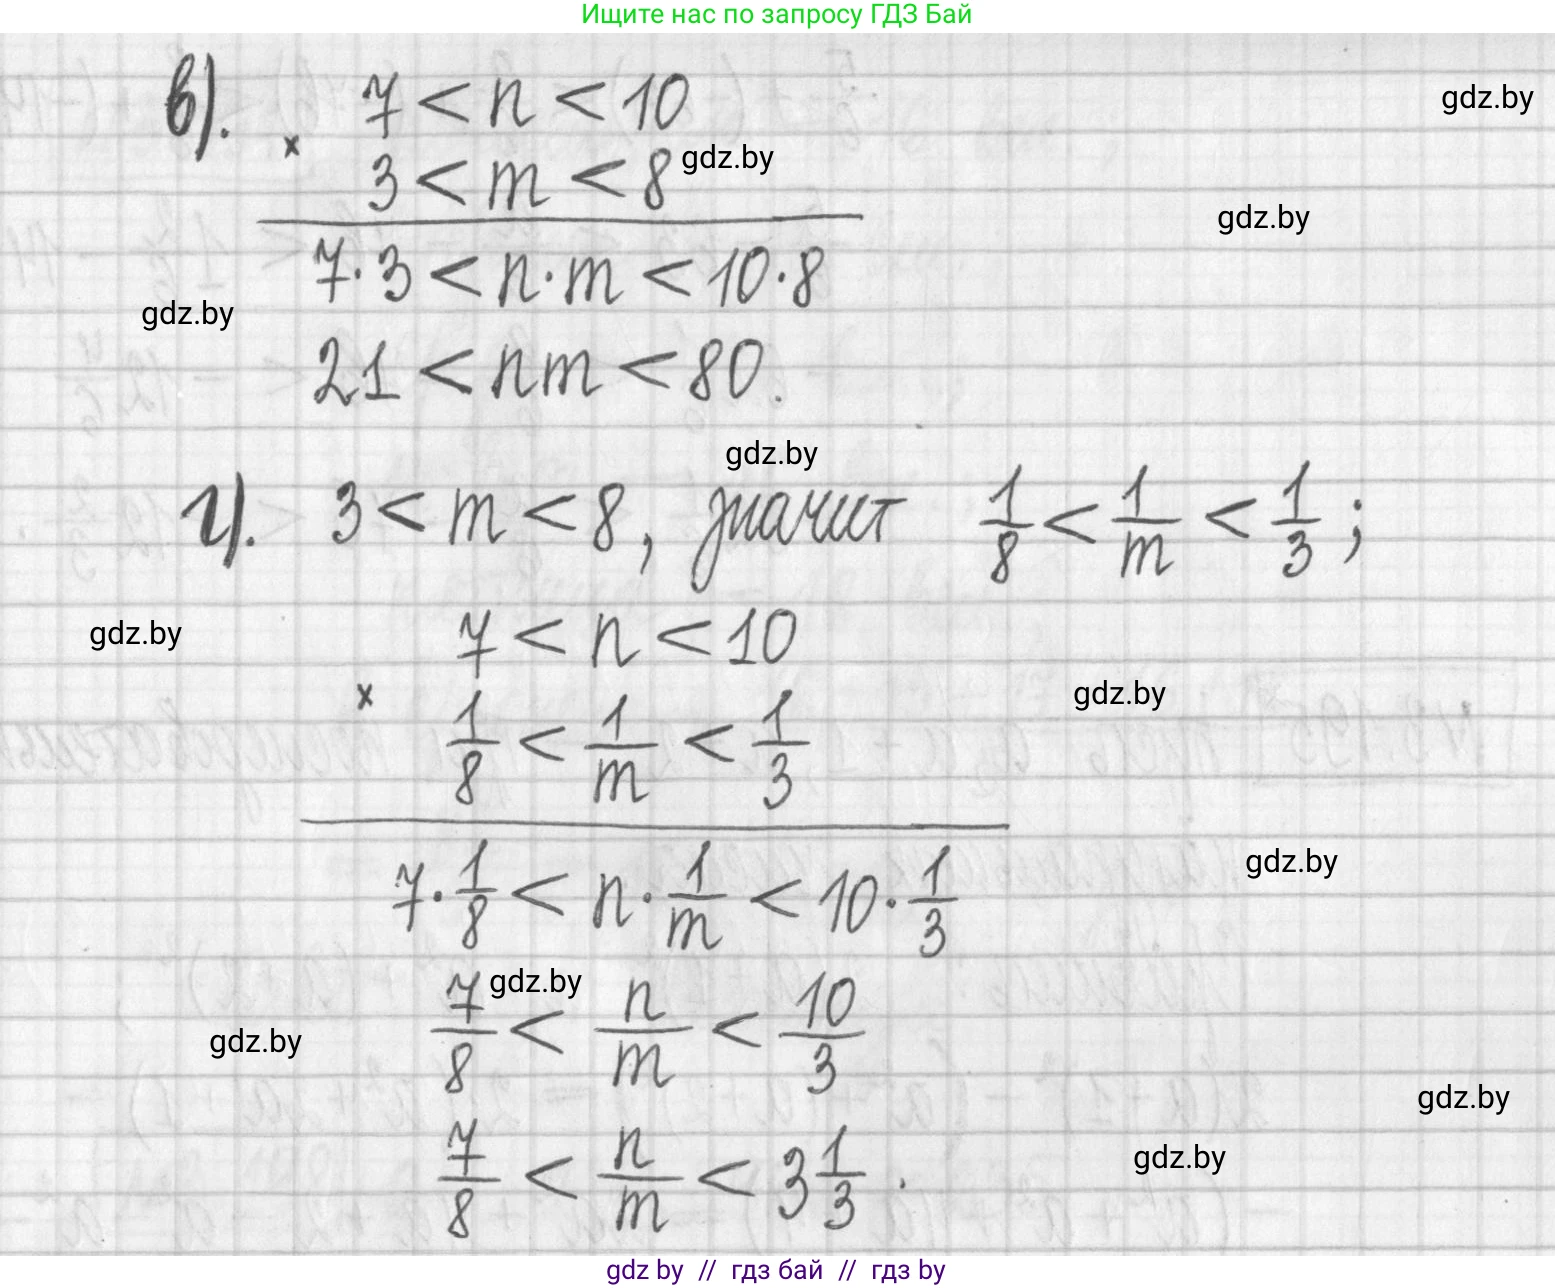 Ищите нас по запросу ГДЗ Бай
в). 7 < n < 10
gdz.by
×
3 < m < 8
gdz.by
gdz.by
7·3 < n·m < 10·8
gdz.by
21 < nm < 80.
gdz.by
г). 3 < m < 8, значит 1/8 < 1/m < 1/3 ;
7 < n < 10
gdz.by
×
gdz.by
1/8 < 1/m < 1/3
gdz.by
7·1/8 < n·1/m < 10·1/3
gdz.by
7/8 < n/m < 10/3
gdz.by
gdz.by
7/8 < n/m < 3 1/3 .
gdz.by
gdz by // гдз бай // гдз by